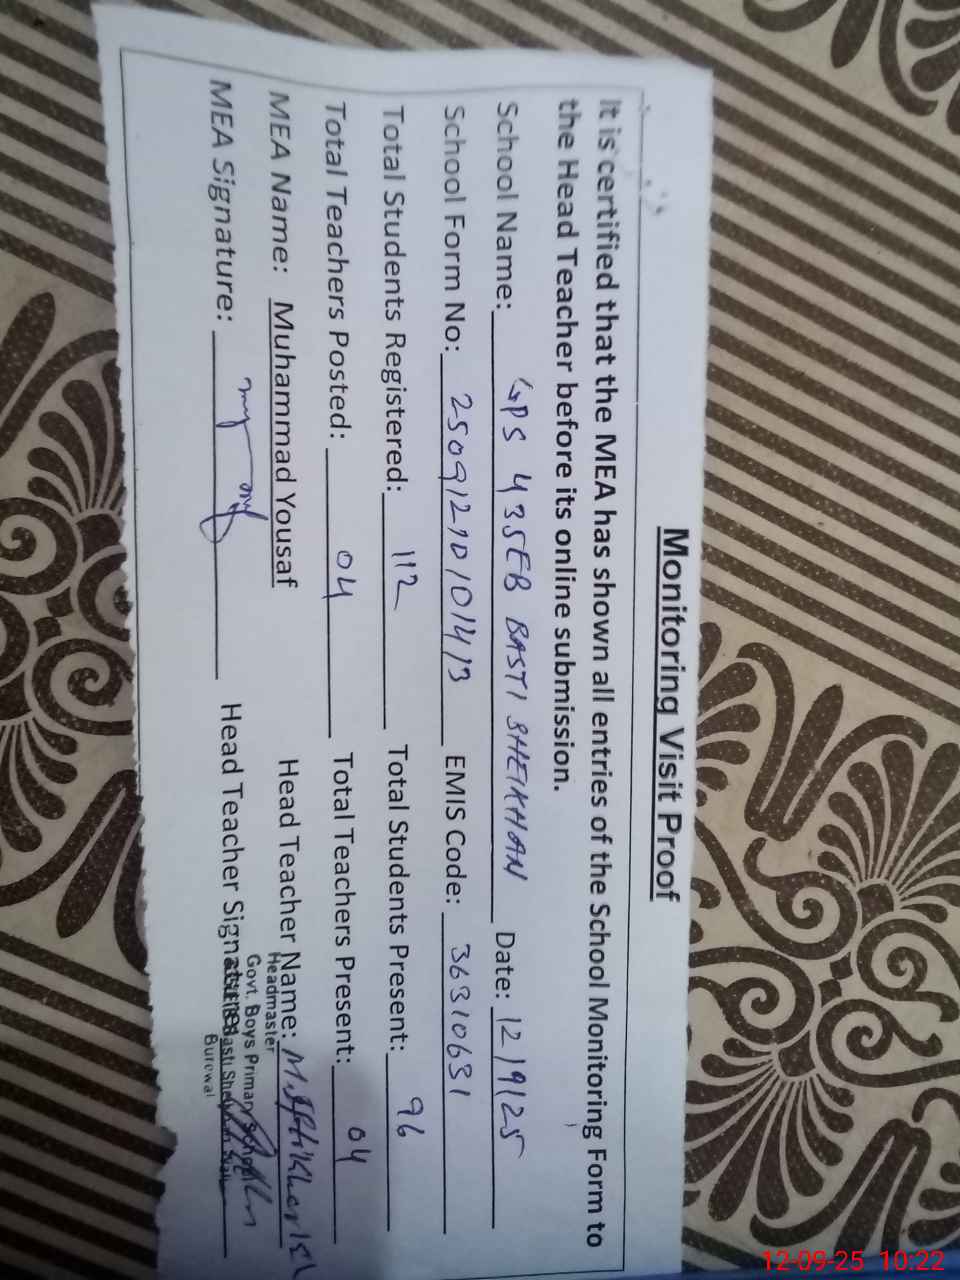 Monitoring Visit Proof
It is certified that the MEA has shown all entries of the School Monitoring Form to
the Head Teacher before its online submission.
School Name: GPS 435EB BASTI SHEIKHAN Date: 12/9/25
School Form No: EMIS Code: 36310631
Total Students Registered: 112 Total Students Present: 96
Total Teachers Posted: 04 Total Teachers Present: 04
MEA Name: Muhammad Yousaf Head Teacher Name:
MEA Signature: Head Teacher Signature:
Headmaster
Govt. Boys Primary School
Burewal
12-09-25 10:22